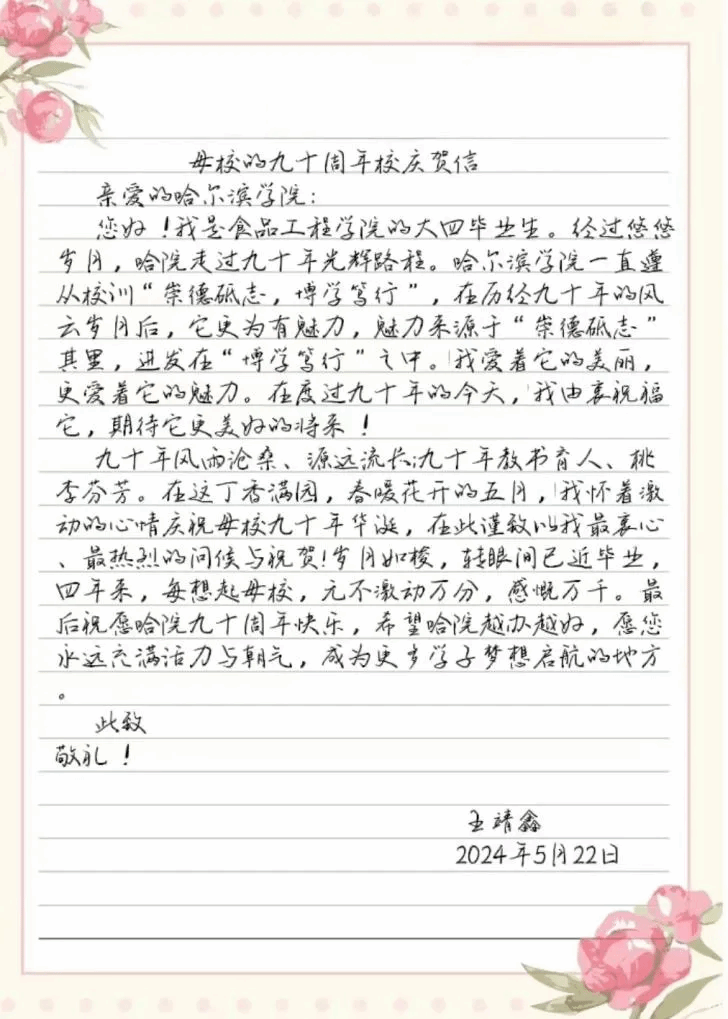 母校的九十周年校庆贺信
亲爱的哈尔滨学院：
您好！我是食品工程学院的大四毕业生。经过悠悠
岁月，哈院走过九十年光辉路程。哈尔滨学院一直遵
从校训“崇德砥志，博学笃行”，在历经九十年的风
云岁月后，它更为有魅力，魅力来源于“崇德砥志”
其里，迸发在“博学笃行”之中。我爱着它的美丽，
更爱着它的魅力。在度过九十年的今天，我由衷祝福
它，期待它更美好的将来！
九十年风雨沧桑、源远流长；九十年教书育人、桃
李芬芳。在这丁香满园，春暖花开的五月，我怀着激
动的心情庆祝母校九十年华诞，在此谨致以我最衷心
、最热烈的问候与祝贺！岁月如梭，转眼间已近毕业，
四年来，每想起母校，无不激动万分，感慨万千。最
后祝愿哈院九十周年快乐，希望哈院越办越好，愿您
永远充满活力与朝气，成为更多学子梦想启航的地方
。
此致
敬礼！
王靖鑫
2024年5月22日